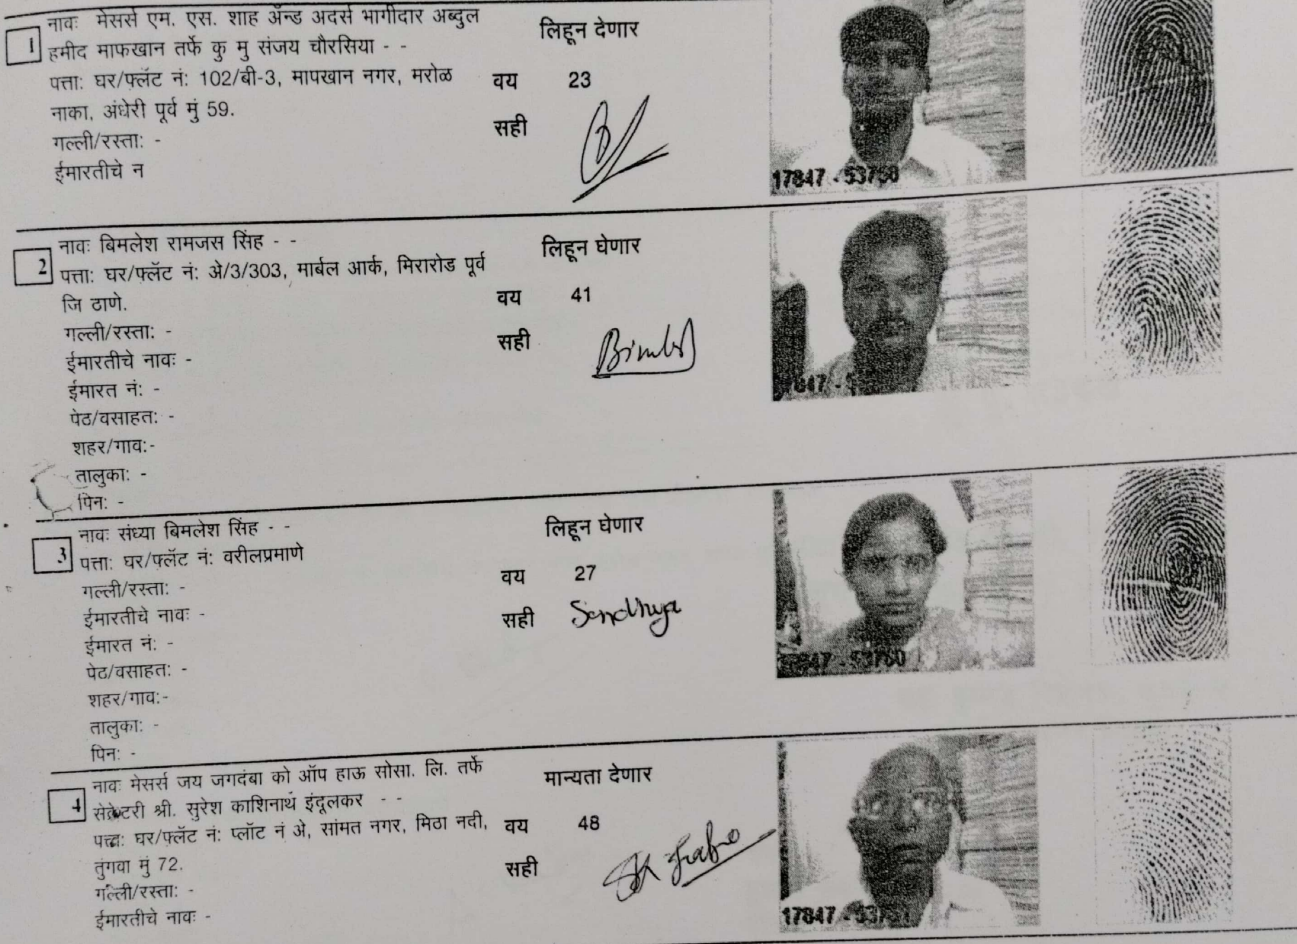 1
नावः मेसर्स एम. एस. शाह ॲन्ड अदर्स भागीदार अब्दुल
हमीद माफखान तर्फे कु मु संजय चौरसिया - -
पत्ता: घर/फ्लॅट नं: 102/बी-3, मापखान नगर, मरोळ
नाका, अंधेरी पूर्व मुं 59.
गल्ली/रस्ता: -
ईमारतीचे न
लिहून देणार
वय 23
सही
17847 - 53760
2
नावः बिमलेश रामजस सिंह - -
पत्ता: घर/फ्लॅट नं: अे/3/303, मार्बल आर्क, मिरारोड पूर्व
जि ठाणे.
गल्ली/रस्ता: -
ईमारतीचे नावः -
ईमारत नं: -
पेठ/वसाहत: -
शहर/गाव:-
तालुका: -
पिन: -
लिहून घेणार
वय 41
सही
3
नावः संध्या बिमलेश सिंह - -
पत्ता: घर/फ्लॅट नं: वरीलप्रमाणे
गल्ली/रस्ता: -
ईमारतीचे नावः -
ईमारत नं: -
पेठ/वसाहत: -
शहर/गाव:-
तालुका: -
पिन: -
लिहून घेणार
वय 27
सही Sandhya
17847 - 53760
4
नावः मेसर्स जय जगदंबा को ऑप हाऊ सोसा. लि. तर्फे
सेक्रेटरी श्री. सुरेश काशिनाथ इंदूलकर - -
पत्ता: घर/फ्लॅट नं: प्लॉट नं अे, सांमत नगर, मिठा नदी,
तुंगवा मुं 72.
गल्ली/रस्ता: -
ईमारतीचे नावः -
मान्यता देणार
वय 48
सही
17847